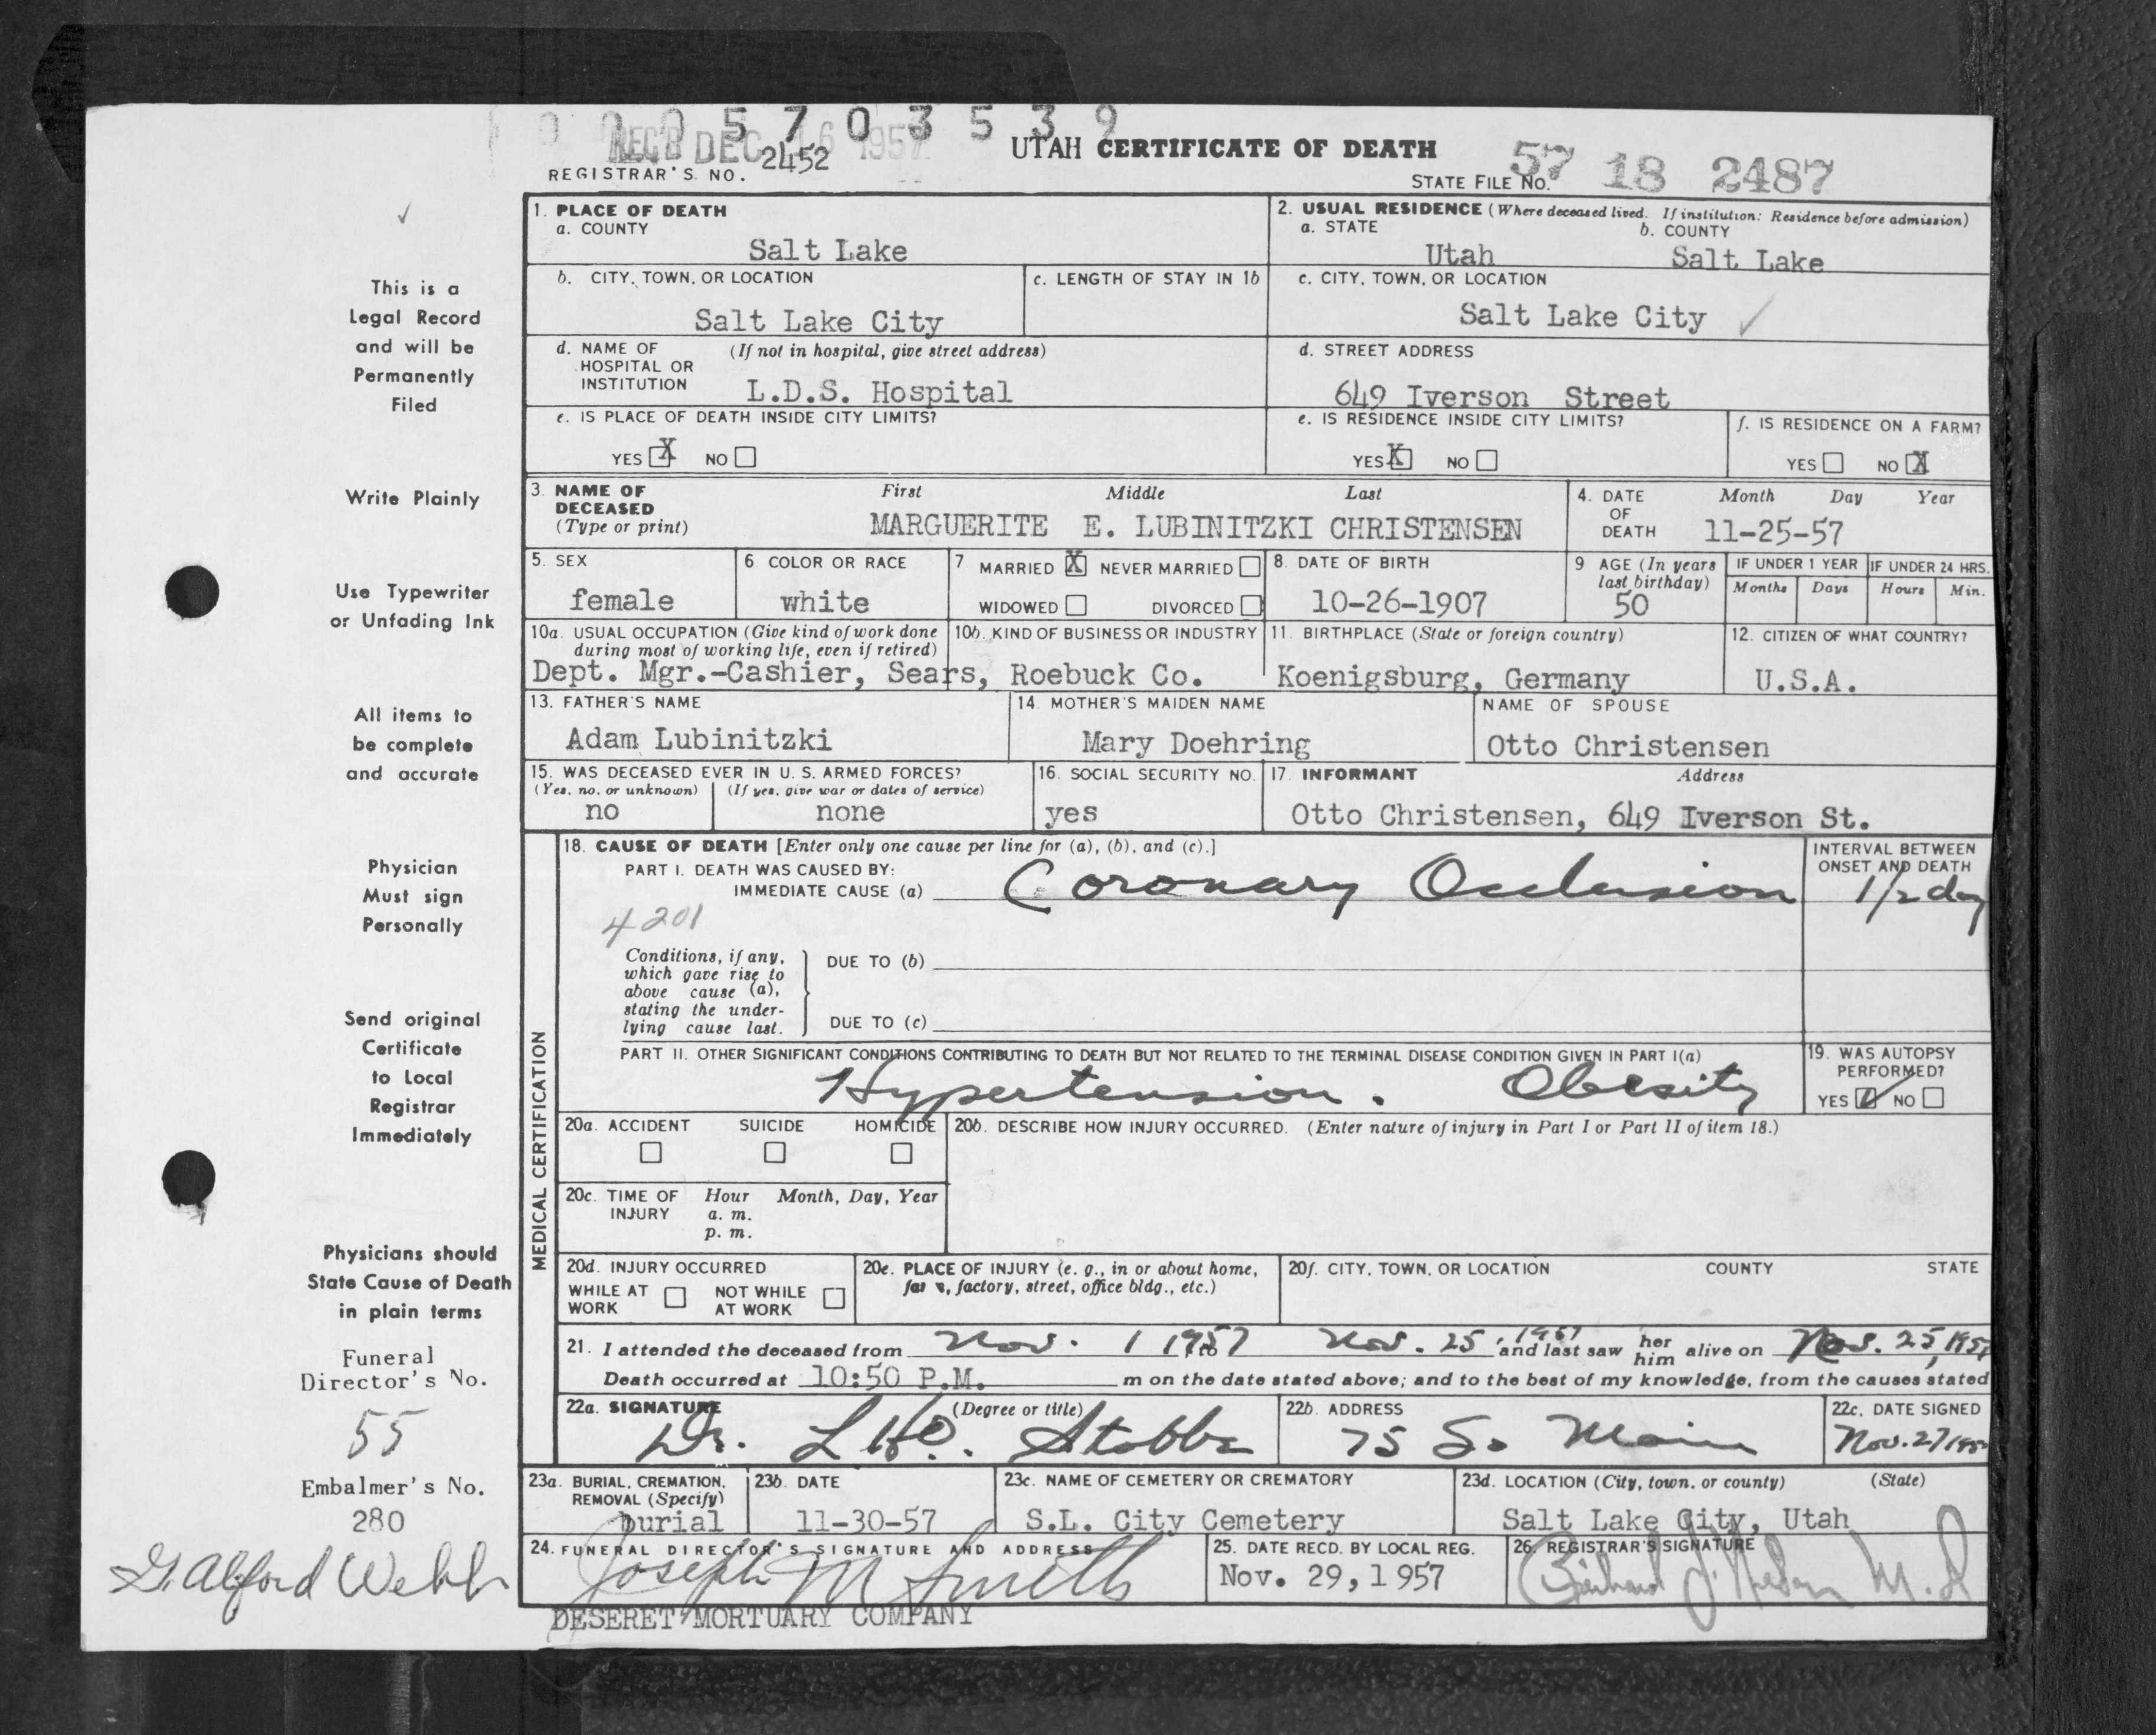 0 0 0 5 7 0 3 5 3 9
REC'D DEC 16 1957
REGISTRAR'S NO. 2452
UTAH CERTIFICATE OF DEATH
STATE FILE NO. 57 18 2487
This is a
Legal Record
and will be
Permanently
Filed
Write Plainly
Use Typewriter
or Unfading Ink
All items to
be complete
and accurate
Physician
Must sign
Personally
Send original
Certificate
to Local
Registrar
Immediately
Physicians should
State Cause of Death
in plain terms
Funeral
Director's No.
55
Embalmer's No.
280
G. Alford Webb
1. PLACE OF DEATH
a. COUNTY
Salt Lake
2. USUAL RESIDENCE (Where deceased lived. If institution: Residence before admission)
a. STATE b. COUNTY
Utah Salt Lake
b. CITY, TOWN, OR LOCATION
Salt Lake City
c. LENGTH OF STAY IN 1b
c. CITY, TOWN, OR LOCATION
Salt Lake City
d. NAME OF (If not in hospital, give street address)
HOSPITAL OR
INSTITUTION L.D.S. Hospital
d. STREET ADDRESS
649 Iverson Street
e. IS PLACE OF DEATH INSIDE CITY LIMITS?
YES X NO
e. IS RESIDENCE INSIDE CITY LIMITS?
YES X NO
f. IS RESIDENCE ON A FARM?
YES NO X
3. NAME OF First Middle Last
DECEASED
(Type or print) MARGUERITE E. LUBINITZKI CHRISTENSEN
4. DATE Month Day Year
OF
DEATH 11-25-57
5. SEX
female
6. COLOR OR RACE
white
7 MARRIED X NEVER MARRIED
WIDOWED DIVORCED
8. DATE OF BIRTH
10-26-1907
9 AGE (In years
last birthday)
50
IF UNDER 1 YEAR IF UNDER 24 HRS.
Months Days Hours Min.
10a. USUAL OCCUPATION (Give kind of work done
during most of working life, even if retired)
10b. KIND OF BUSINESS OR INDUSTRY
Dept. Mgr.-Cashier, Sears, Roebuck Co.
11. BIRTHPLACE (State or foreign country)
Koenigsburg, Germany
12. CITIZEN OF WHAT COUNTRY?
U.S.A.
13. FATHER'S NAME
Adam Lubinitzki
14. MOTHER'S MAIDEN NAME
Mary Doehring
NAME OF SPOUSE
Otto Christensen
15. WAS DECEASED EVER IN U. S. ARMED FORCES?
(Yes, no, or unknown) (If yes, give war or dates of service)
no none
16. SOCIAL SECURITY NO.
yes
17. INFORMANT Address
Otto Christensen, 649 Iverson St.
MEDICAL CERTIFICATION
18. CAUSE OF DEATH [Enter only one cause per line for (a), (b), and (c).]
PART I. DEATH WAS CAUSED BY:
IMMEDIATE CAUSE (a) Coronary Occlusion
INTERVAL BETWEEN
ONSET AND DEATH
1/2 day
4201
Conditions, if any,
which gave rise to
above cause (a),
stating the under-
lying cause last.
DUE TO (b)
DUE TO (c)
PART II. OTHER SIGNIFICANT CONDITIONS CONTRIBUTING TO DEATH BUT NOT RELATED TO THE TERMINAL DISEASE CONDITION GIVEN IN PART I(a)
Hypertension. Obesity
19. WAS AUTOPSY
PERFORMED?
YES NO
20a. ACCIDENT SUICIDE HOMICIDE
20b. DESCRIBE HOW INJURY OCCURRED. (Enter nature of injury in Part I or Part II of item 18.)
20c. TIME OF Hour Month, Day, Year
INJURY a. m.
p. m.
20d. INJURY OCCURRED
WHILE AT NOT WHILE
WORK AT WORK
20e. PLACE OF INJURY (e. g., in or about home,
farm, factory, street, office bldg., etc.)
20f. CITY, TOWN, OR LOCATION COUNTY STATE
21. I attended the deceased from Nov. 1 1957 to Nov. 25, 1957 and last saw her him alive on Nov. 25, 1957
Death occurred at 10:50 P.M. m on the date stated above; and to the best of my knowledge, from the causes stated
22a. SIGNATURE (Degree or title)
Dr. Stobbe
22b. ADDRESS
75 So Main
22c. DATE SIGNED
Nov. 27 195
23a. BURIAL, CREMATION,
REMOVAL (Specify)
burial
23b. DATE
11-30-57
23c. NAME OF CEMETERY OR CREMATORY
S.L. City Cemetery
23d. LOCATION (City, town, or county) (State)
Salt Lake City, Utah
24. FUNERAL DIRECTOR'S SIGNATURE AND ADDRESS
Joseph M Smith
DESERET MORTUARY COMPANY
25. DATE RECD. BY LOCAL REG.
Nov. 29, 1957
26. REGISTRAR'S SIGNATURE
M.D